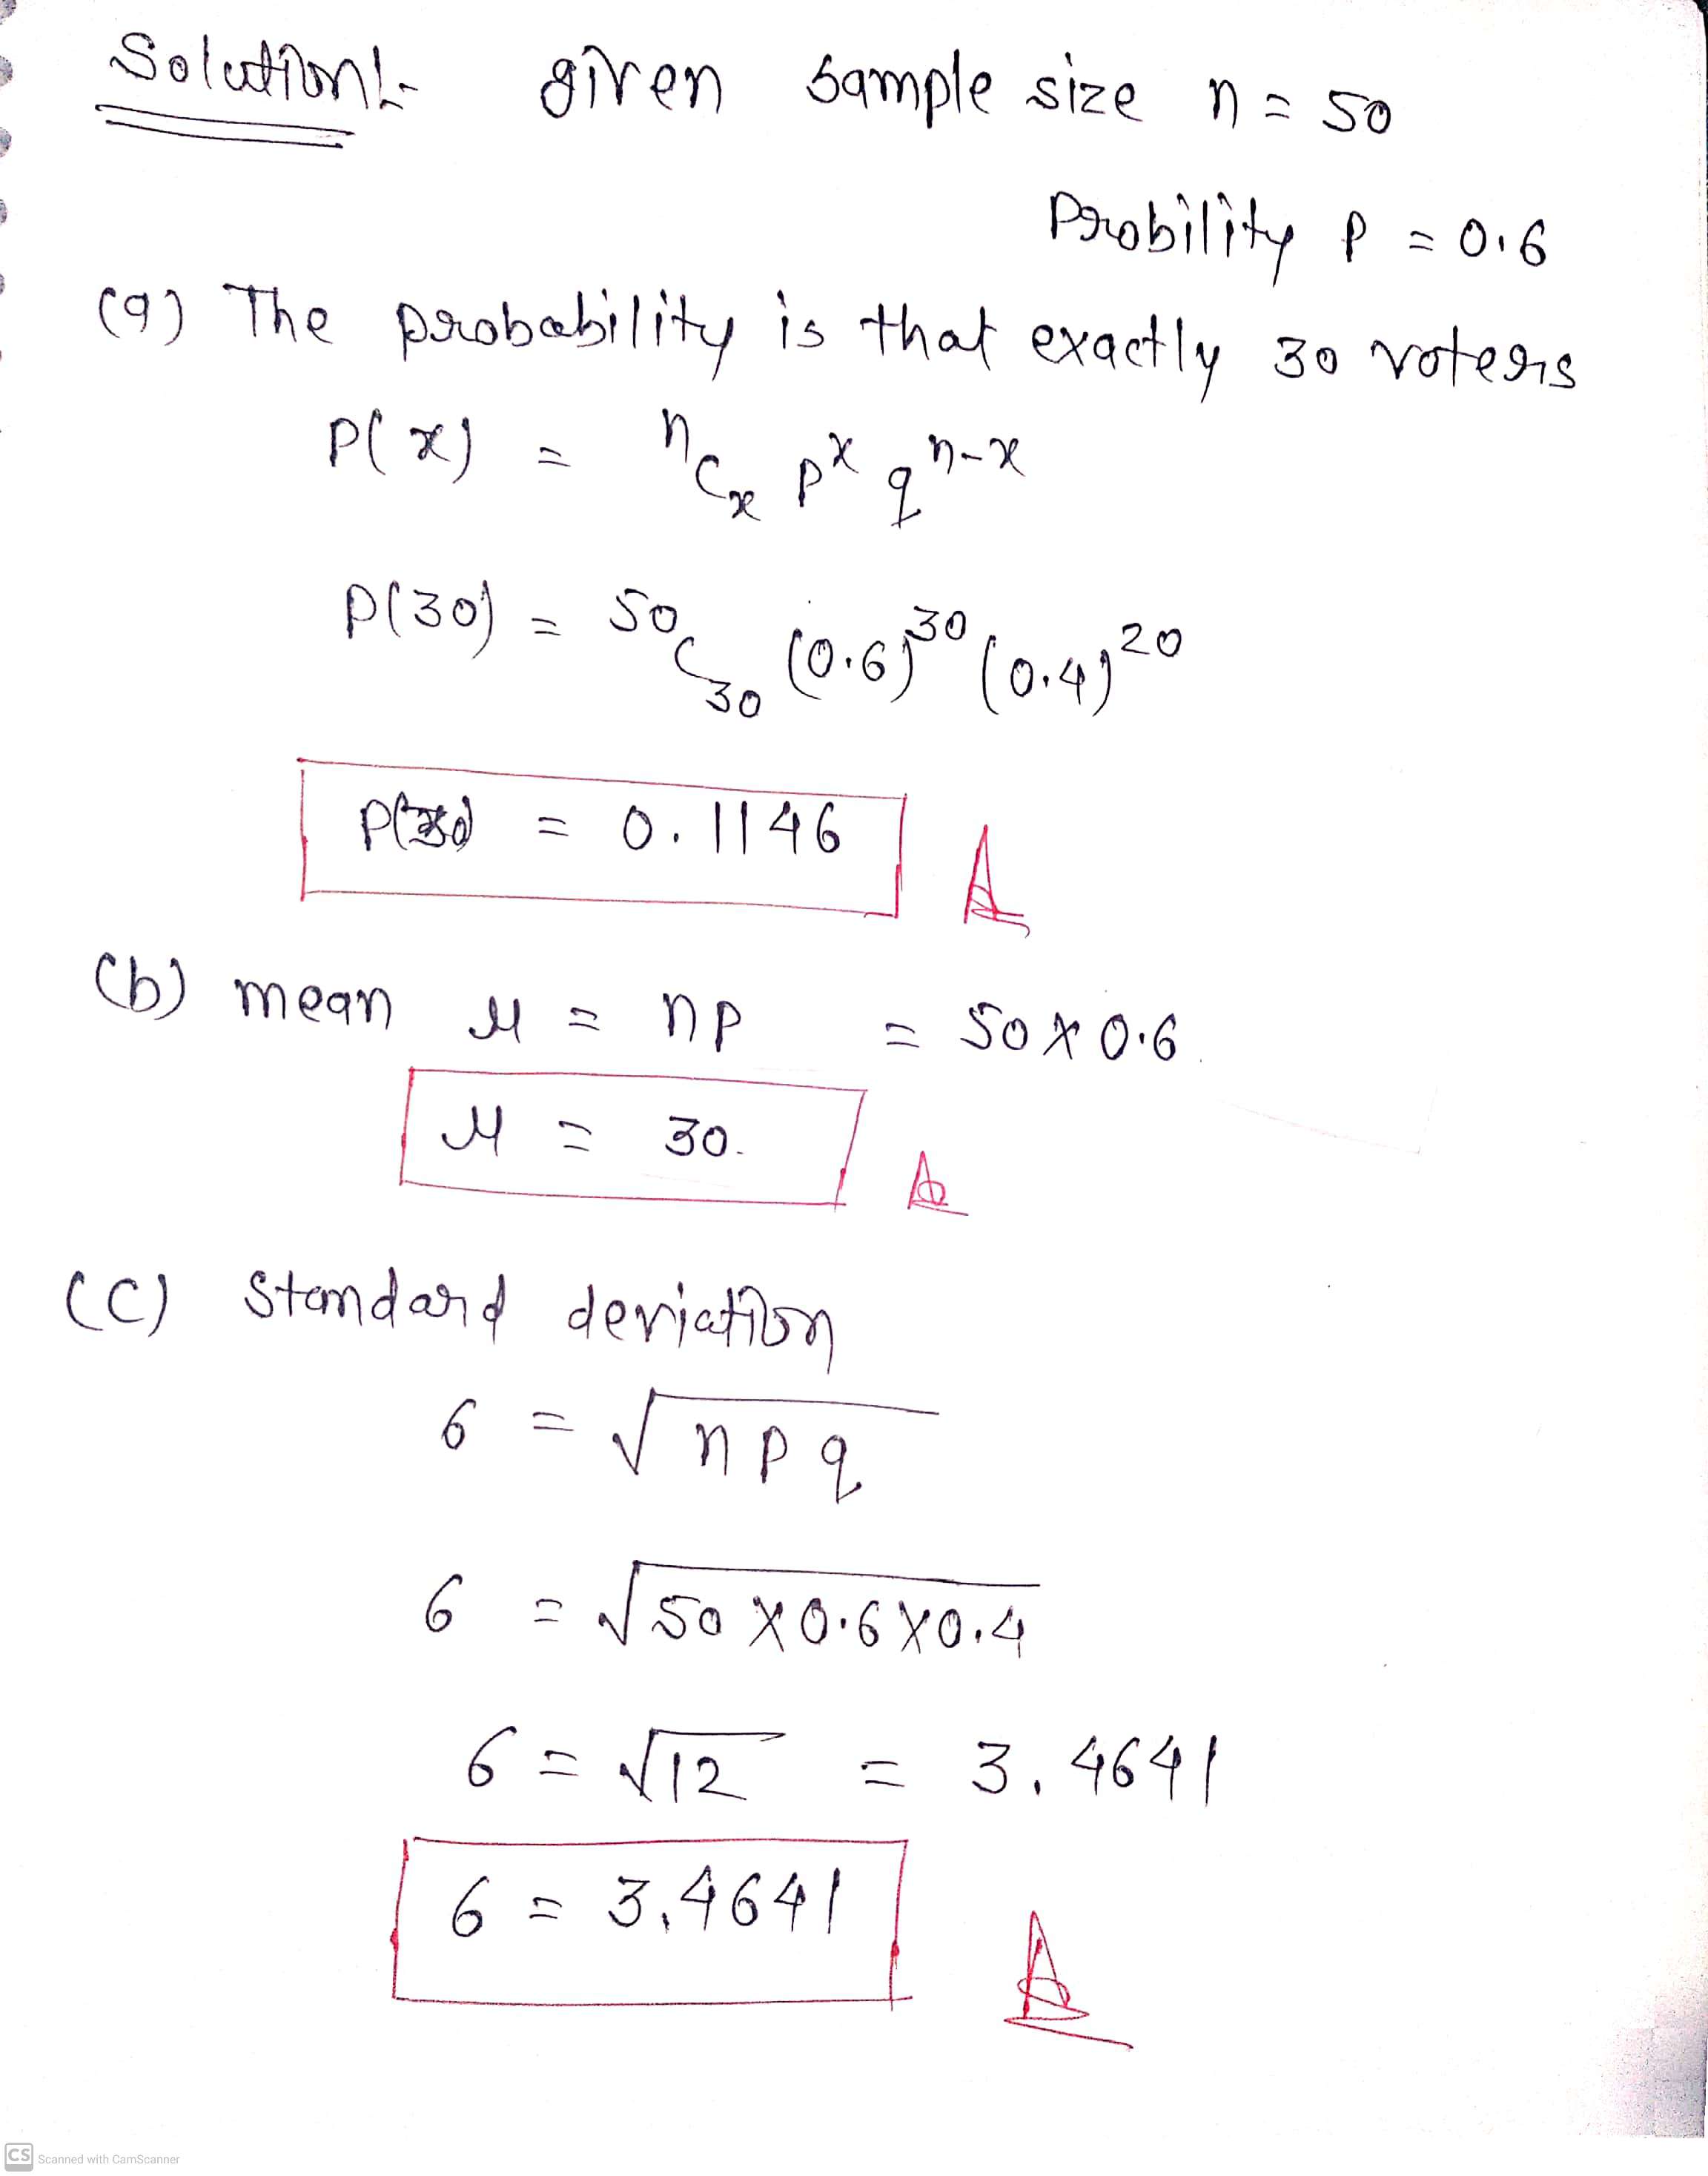 Solution:- given sample size n = 50
Probility P = 0.6
(a) The probability is that exactly 30 voters
P(x) = ⁿCₓ pˣ qⁿ⁻ˣ
P(30) = ⁵⁰C₃₀ (0.6)³⁰ (0.4)²⁰
P(30) = 0.1146
(b) mean μ = np = 50 × 0.6
μ = 30.
(C) Standard deviation
σ = √npq
σ = √50 × 0.6 × 0.4
σ = √12 = 3.4641
σ = 3.4641
CS Scanned with CamScanner